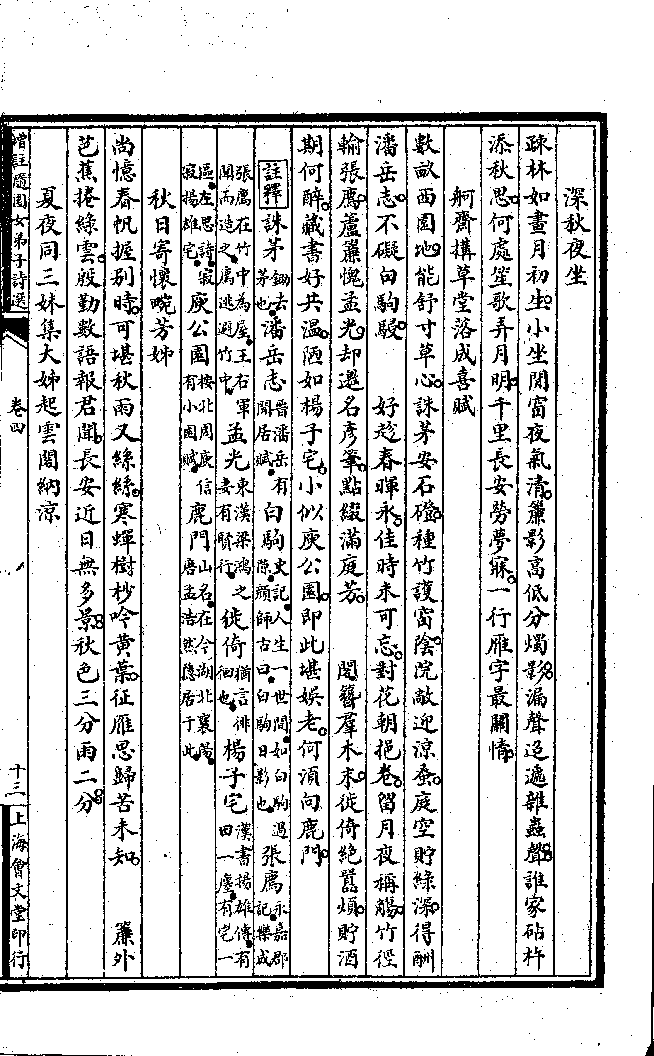 深秋夜坐
疎林如畫月初生小坐閒窗夜氣清簾影高低分燭影漏聲迢遞雜蟲聲誰家砧杵
添秋思何處笙歌弄月明千里長安勞夢寐一行雁字最關情
舸齋搆草堂落成喜賦
數畝西園地能舒寸草心誅茅安石磴種竹護窗陰院敞迎涼蚤庭空貯綠深得酬
潘岳志不礙白駒駸　好趁春暉永佳時未可忘對花朝挹卷留月夜稱觴竹徑
輸張廌蘆簾愧孟光却邀名彥筆點綴滿庭芳　閣簪羣木末徙倚絕囂煩貯酒
期何醉藏書好共温陋如楊子宅小似庾公園即此堪娛老何須向鹿門
註釋 誅茅鋤去茅也潘岳志晉潘岳有閒居賦白駒史記人生一世間如白駒過隙顔師古曰白駒日影也張廌永嘉郡記樂成
張廌在竹中為屋王右軍聞而造之廌逃避竹中孟光東漢梁鴻之妻有賢行徙倚猶言徘徊也楊子宅漢書揚雄傳有田一廛有宅一
區左思詩寂寂楊雄宅庾公園按北周庾信有小園賦鹿門山名在今湖北襄陽唐孟浩然隱居于此
秋日寄懷畹芳姊
尚憶春帆握别時可堪秋雨又絲絲寒蟬樹杪吟黄葉征雁思歸苦未知　簾外
芭蕉捲綠雲殷勤數語報君聞長安近日無多景秋色三分雨二分
夏夜同三妹集大姊起雲閣納涼
增註隨園女弟子詩選　卷四　十三　上海會文堂印行